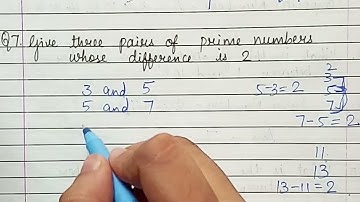 Q7. Give three pairs of prime numbers
whose difference is 2.
3 and 5
5 and 7
5-3=2
2
3
5
7
7-5=2
11
13
13-11=2